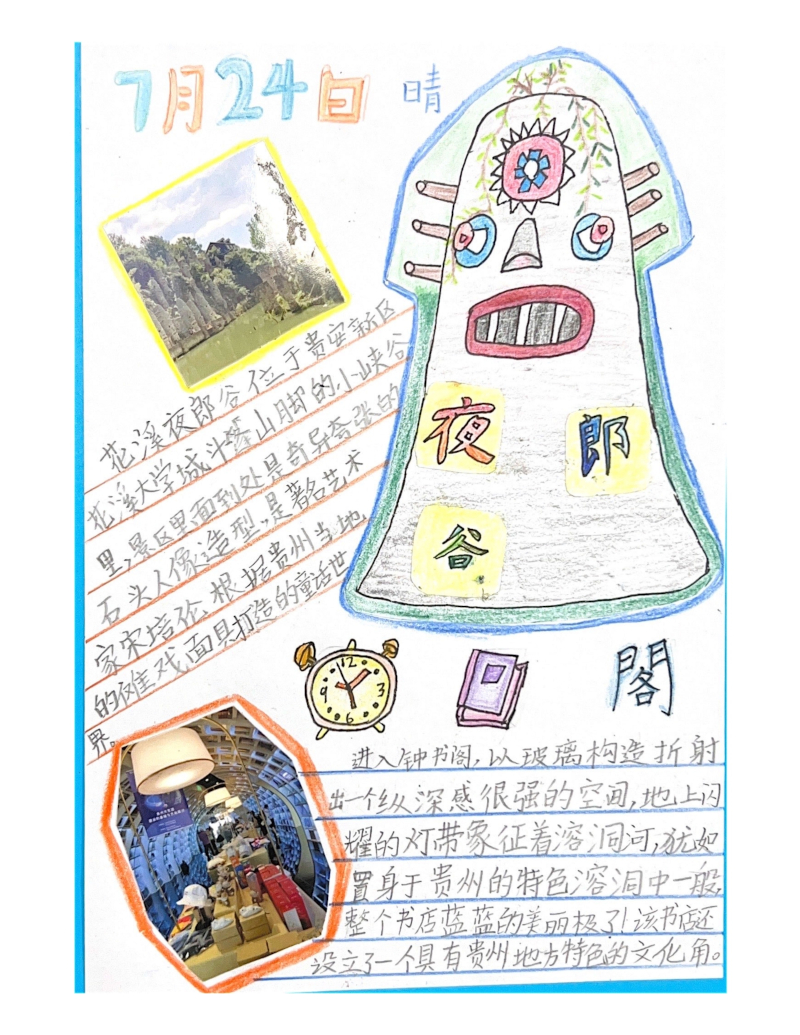 7月24日 晴
花溪夜郎谷位于贵安新区
花溪大学城斗篷山脚的小峡谷
里,景区里面到处是奇异夸张的
石头人像造型,是著名艺术
家宋培伦根据贵州当地
的傩戏面具打造的童话世
界。
夜
郎
谷
12
3
6
9
閣
进入钟书阁,以玻璃构造折射
出一个纵深感很强的空间,地上闪
耀的灯带象征着溶洞河,犹如
置身于贵州的特色溶洞中一般,
整个书店蓝蓝的美丽极了!该书店还
设立了一个具有贵州地方特色的文化角。